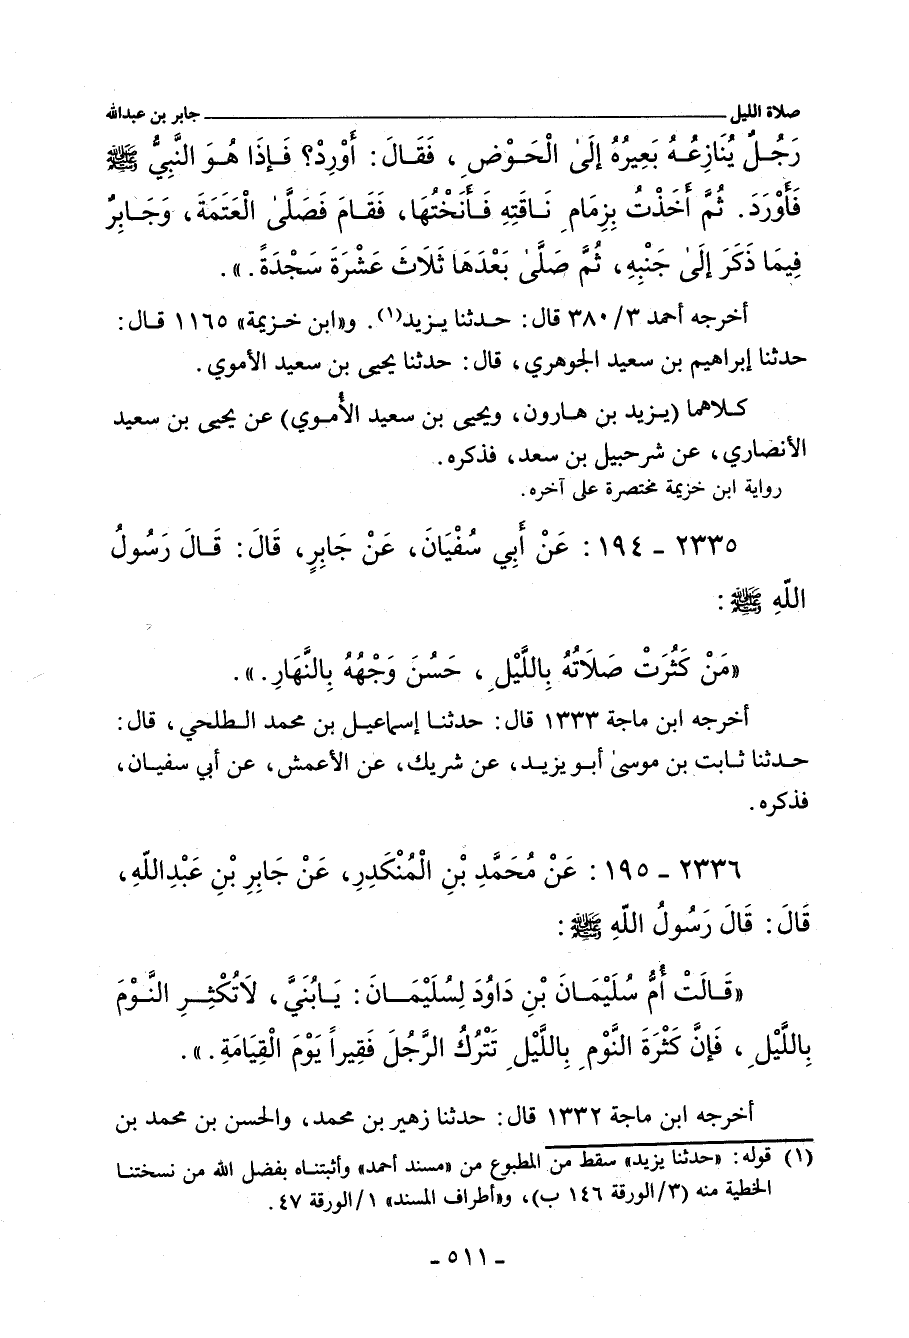 صلاة الليل ـــــــ جابر بن عبدالله
رَجُـلٌ يُنَازِعُـهُ بَعِيرُهُ إِلَىٰ الْحَوْضِ ، فَقَـالَ : أَوْرِدْ؟ فَـإِذَا هُـوَ النَّبِيُّ ﷺ
فَأَوْرَدَ. ثُمَّ أَخَذْتُ بِزِمَامِ نَاقَتِهِ فَـأَنَخْتُهَا، فَقَامَ فَصَلَّىٰ الْعَتَمَةَ، وَجَابِرٌ
فِيمَا ذَكَرَ إِلَىٰ جَنْبِهِ، ثُمَّ صَلَّىٰ بَعْدَهَا ثَلَاثَ عَشْرَةَ سَجْدَةً.».
أخرجه أحمد ٣/ ٣٨٠ قال: حـدثنا يـزيد(١). و«ابن خـزيمة» ١١٦٥ قـال:
حدثنا إبراهيم بن سعيد الجوهري، قال: حدثنا يحيى بن سعيد الأموي.
كـلاهما (يـزيد بن هـارون، ويحيى بن سعيد الأُمـوي) عن يحيى بن سعيد
الأنصاري، عن شرحبيل بن سعد، فذكره.
رواية ابن خزيمة مختصرة على آخره.
٢٣٣٥ ـ ١٩٤ : عَنْ أَبِي سُفْيَانَ، عَنْ جَابِرٍ، قَالَ: قَـالَ رَسُولُ
اللّهِ ﷺ :
«مَنْ كَثُرَتْ صَلَاتُهُ بِاللَّيْلِ ، حَسُنَ وَجْهُهُ بِالنَّهَارِ.».
أخرجه ابن ماجة ١٣٣٣ قال: حدثنـا إسماعيـل بن محمد الـطلحي، قال:
حـدثنا ثـابت بن موسىٰ أبـو يزيـد، عن شريـك، عن الأعمش، عن أبي سفيـان،
فذكره.
٢٣٣٦ ـ ١٩٥ : عَنْ مُحَمَّدِ بْنِ الْمُنْكَدِرِ، عَنْ جَابِرِ بْنِ عَبْدِاللّهِ،
قَالَ: قَالَ رَسُولُ اللّهِ ﷺ :
«قَـالَتْ أُمُّ سُلَيْمَانَ بْنِ دَاوُدَ لِسُلَيْمَـانَ: يَـابُنَيَّ، لَاتُكْثِـرِ النَّوْمَ
بِاللَّيْلِ ، فَإِنَّ كَثْرَةَ النَّوْمِ بِاللَّيْلِ تَتْرُكُ الرَّجُلَ فَقِيراً يَوْمَ الْقِيَامَةِ.».
أخرجه ابن ماجة ١٣٣٢ قال: حـدثنا زهير بن محمد، والحسن بن محمد بن
(١) قوله: «حدثنا يزيد» سقط من المطبوع من «مسند أحمد» وأثبتنـاه بفضل الله من نسختنـا
الخطية منه (٣/الورقة ١٤٦ ب)، و«أطراف المسند» ١/الورقة ٤٧.
ـ ٥١١ ـ